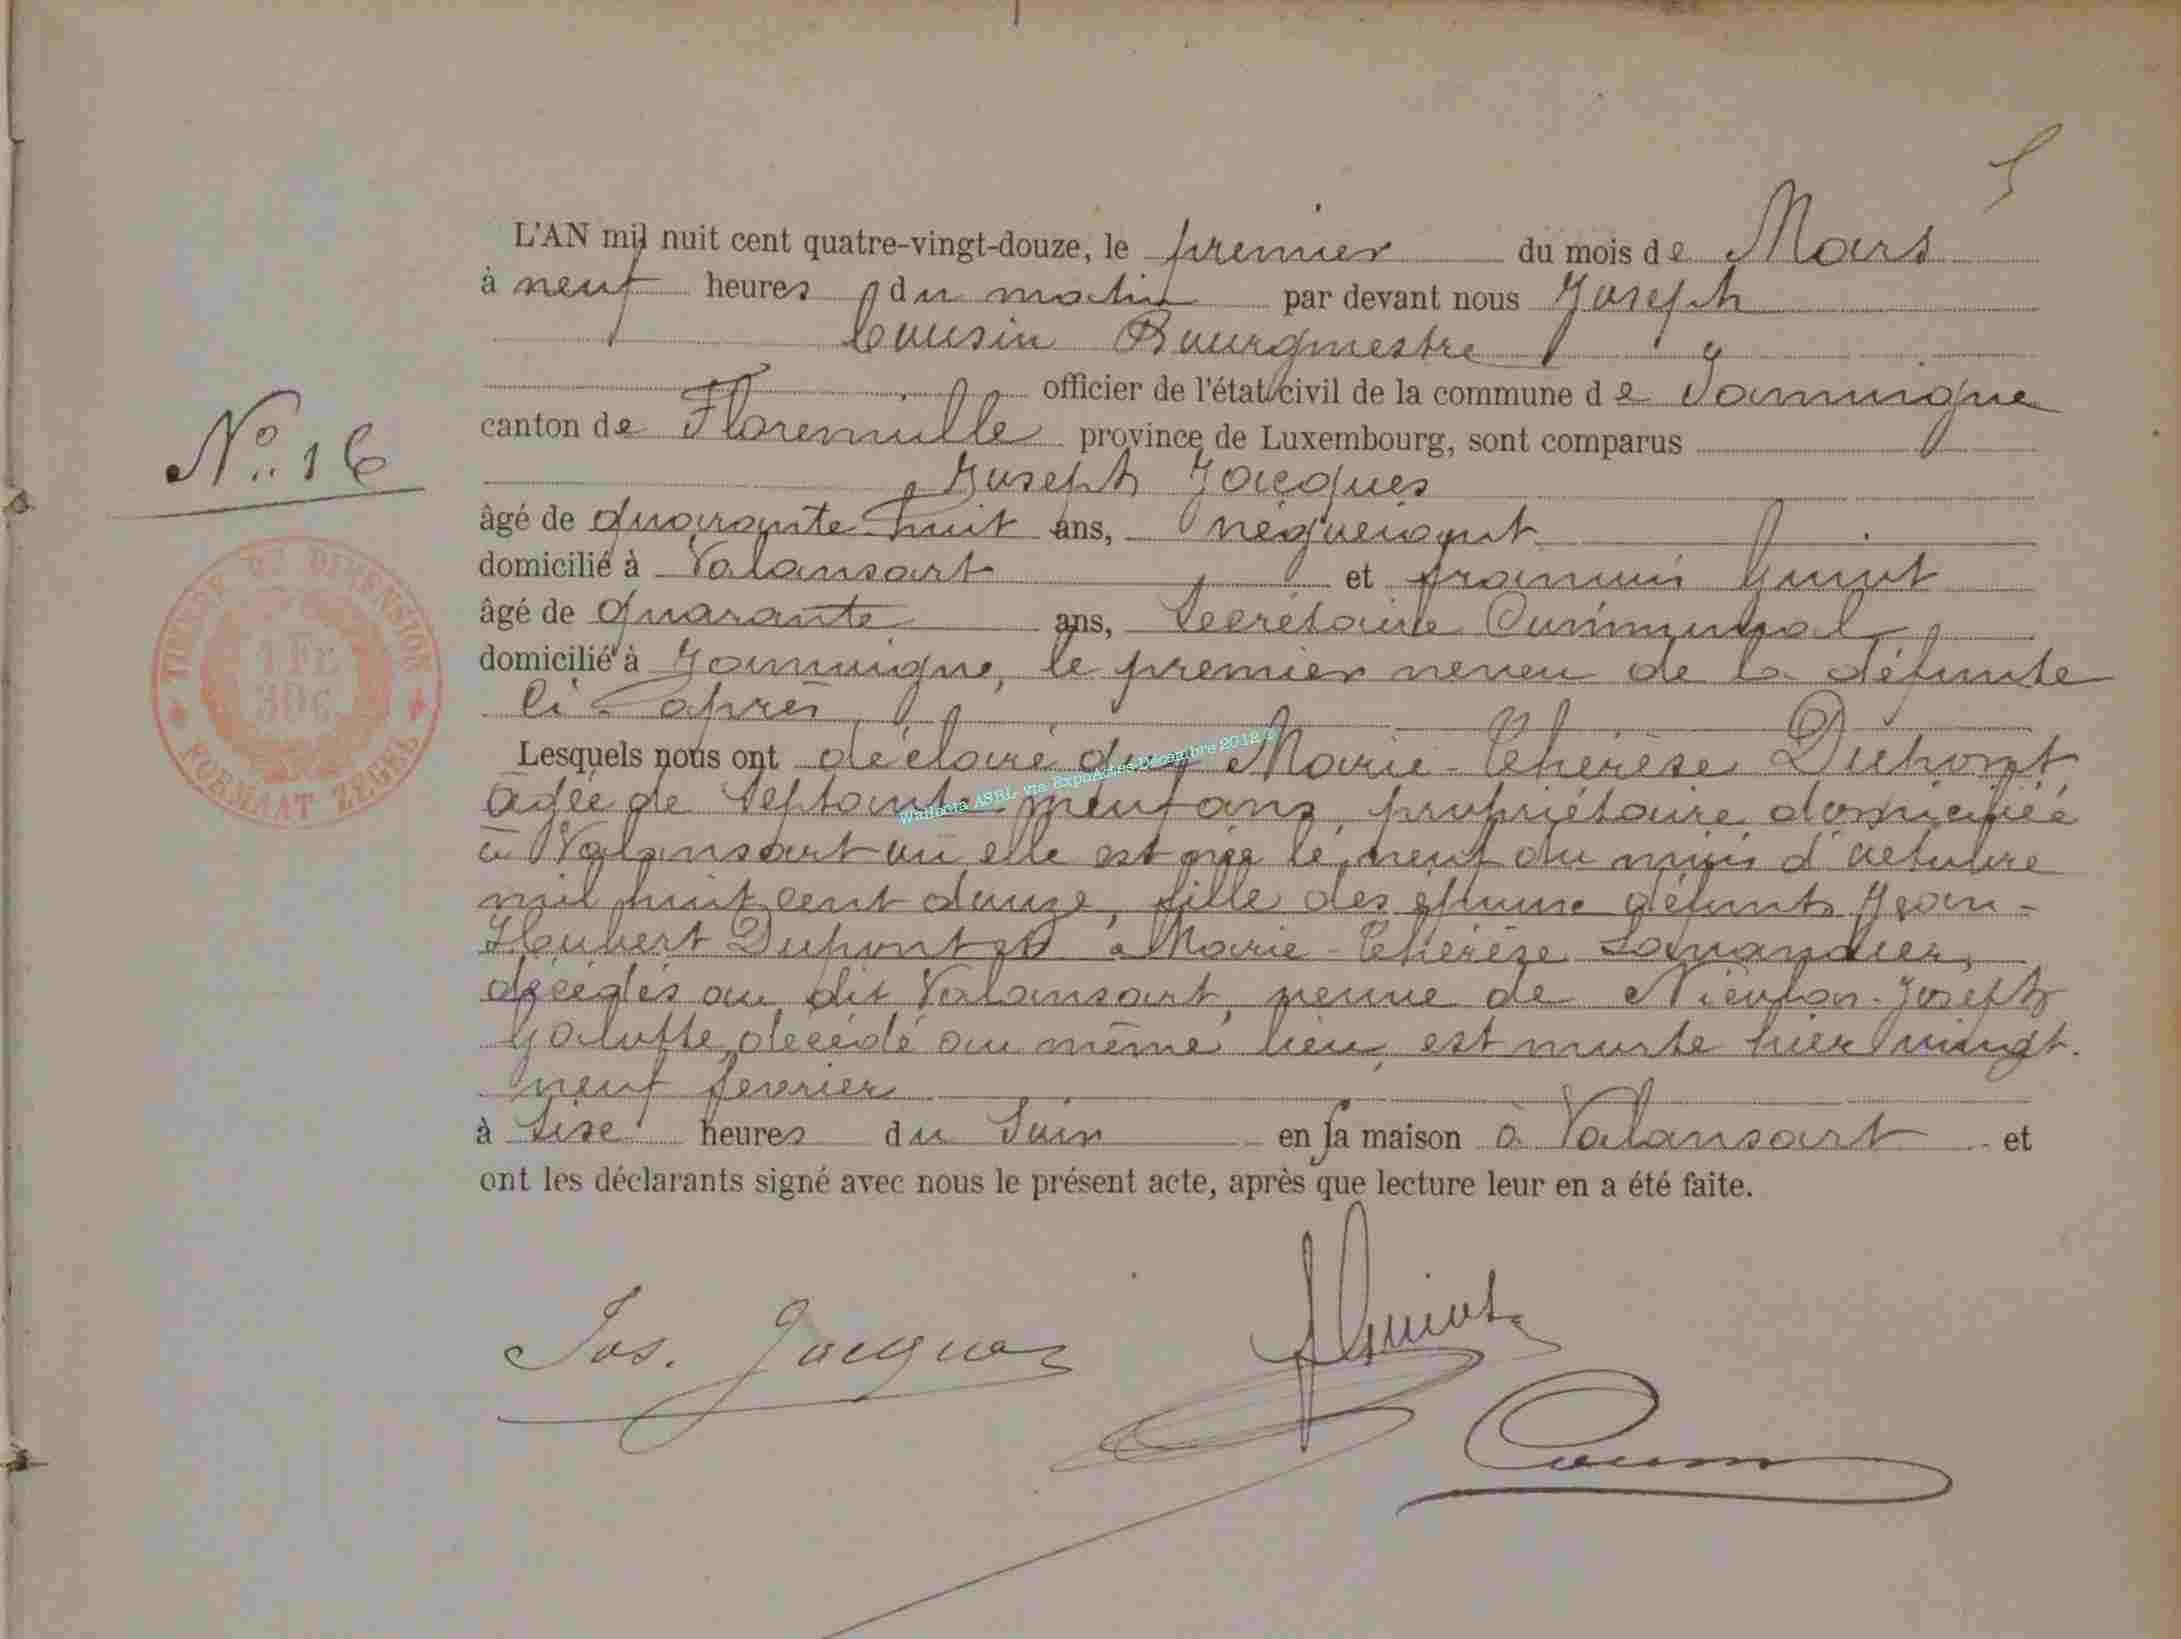 5
L'AN mil huit cent quatre-vingt-douze, le premier du mois de Mars
à neuf heures du matin par devant nous Joseph
Cousin Bourgmestre
officier de l'état civil de la commune de Jamoigne
N° 16
canton de Florenville province de Luxembourg, sont comparus
Joseph Jacques
âgé de quarante huit ans, négociant
domicilié à Valansart et françois Guiot
âgé de quarante ans, Secrétaire Communal
domicilié à Jamoigne, le premier neveu de la défunte
Ci-après
Lesquels nous ont déclaré que Marie-Thérèse Dupont,
âgée de septante neuf ans, propriétaire, domiciliée
à Valansart où elle est née le neuf du mois d'octobre
mil huit cent douze, fille des époux défunts Jean-
Houbert Dupont et Marie-Thérèse Lavandier,
décédés au dit Valansart, veuve de Nicolas-Joseph
Galotte, décédé au même lieu, est morte hier vingt-
neuf fevrier
à sixe heures du Soir en sa maison à Valansart et
ont les déclarants signé avec nous le présent acte, après que lecture leur en a été faite.
Jos. Jacques
f Guiot
Cousin
TIMBRE DE DIMENSION
1 FR
30 C
FORMAAT ZEGEL
Wallonia ASBL via ExpoActes Décembre 2012